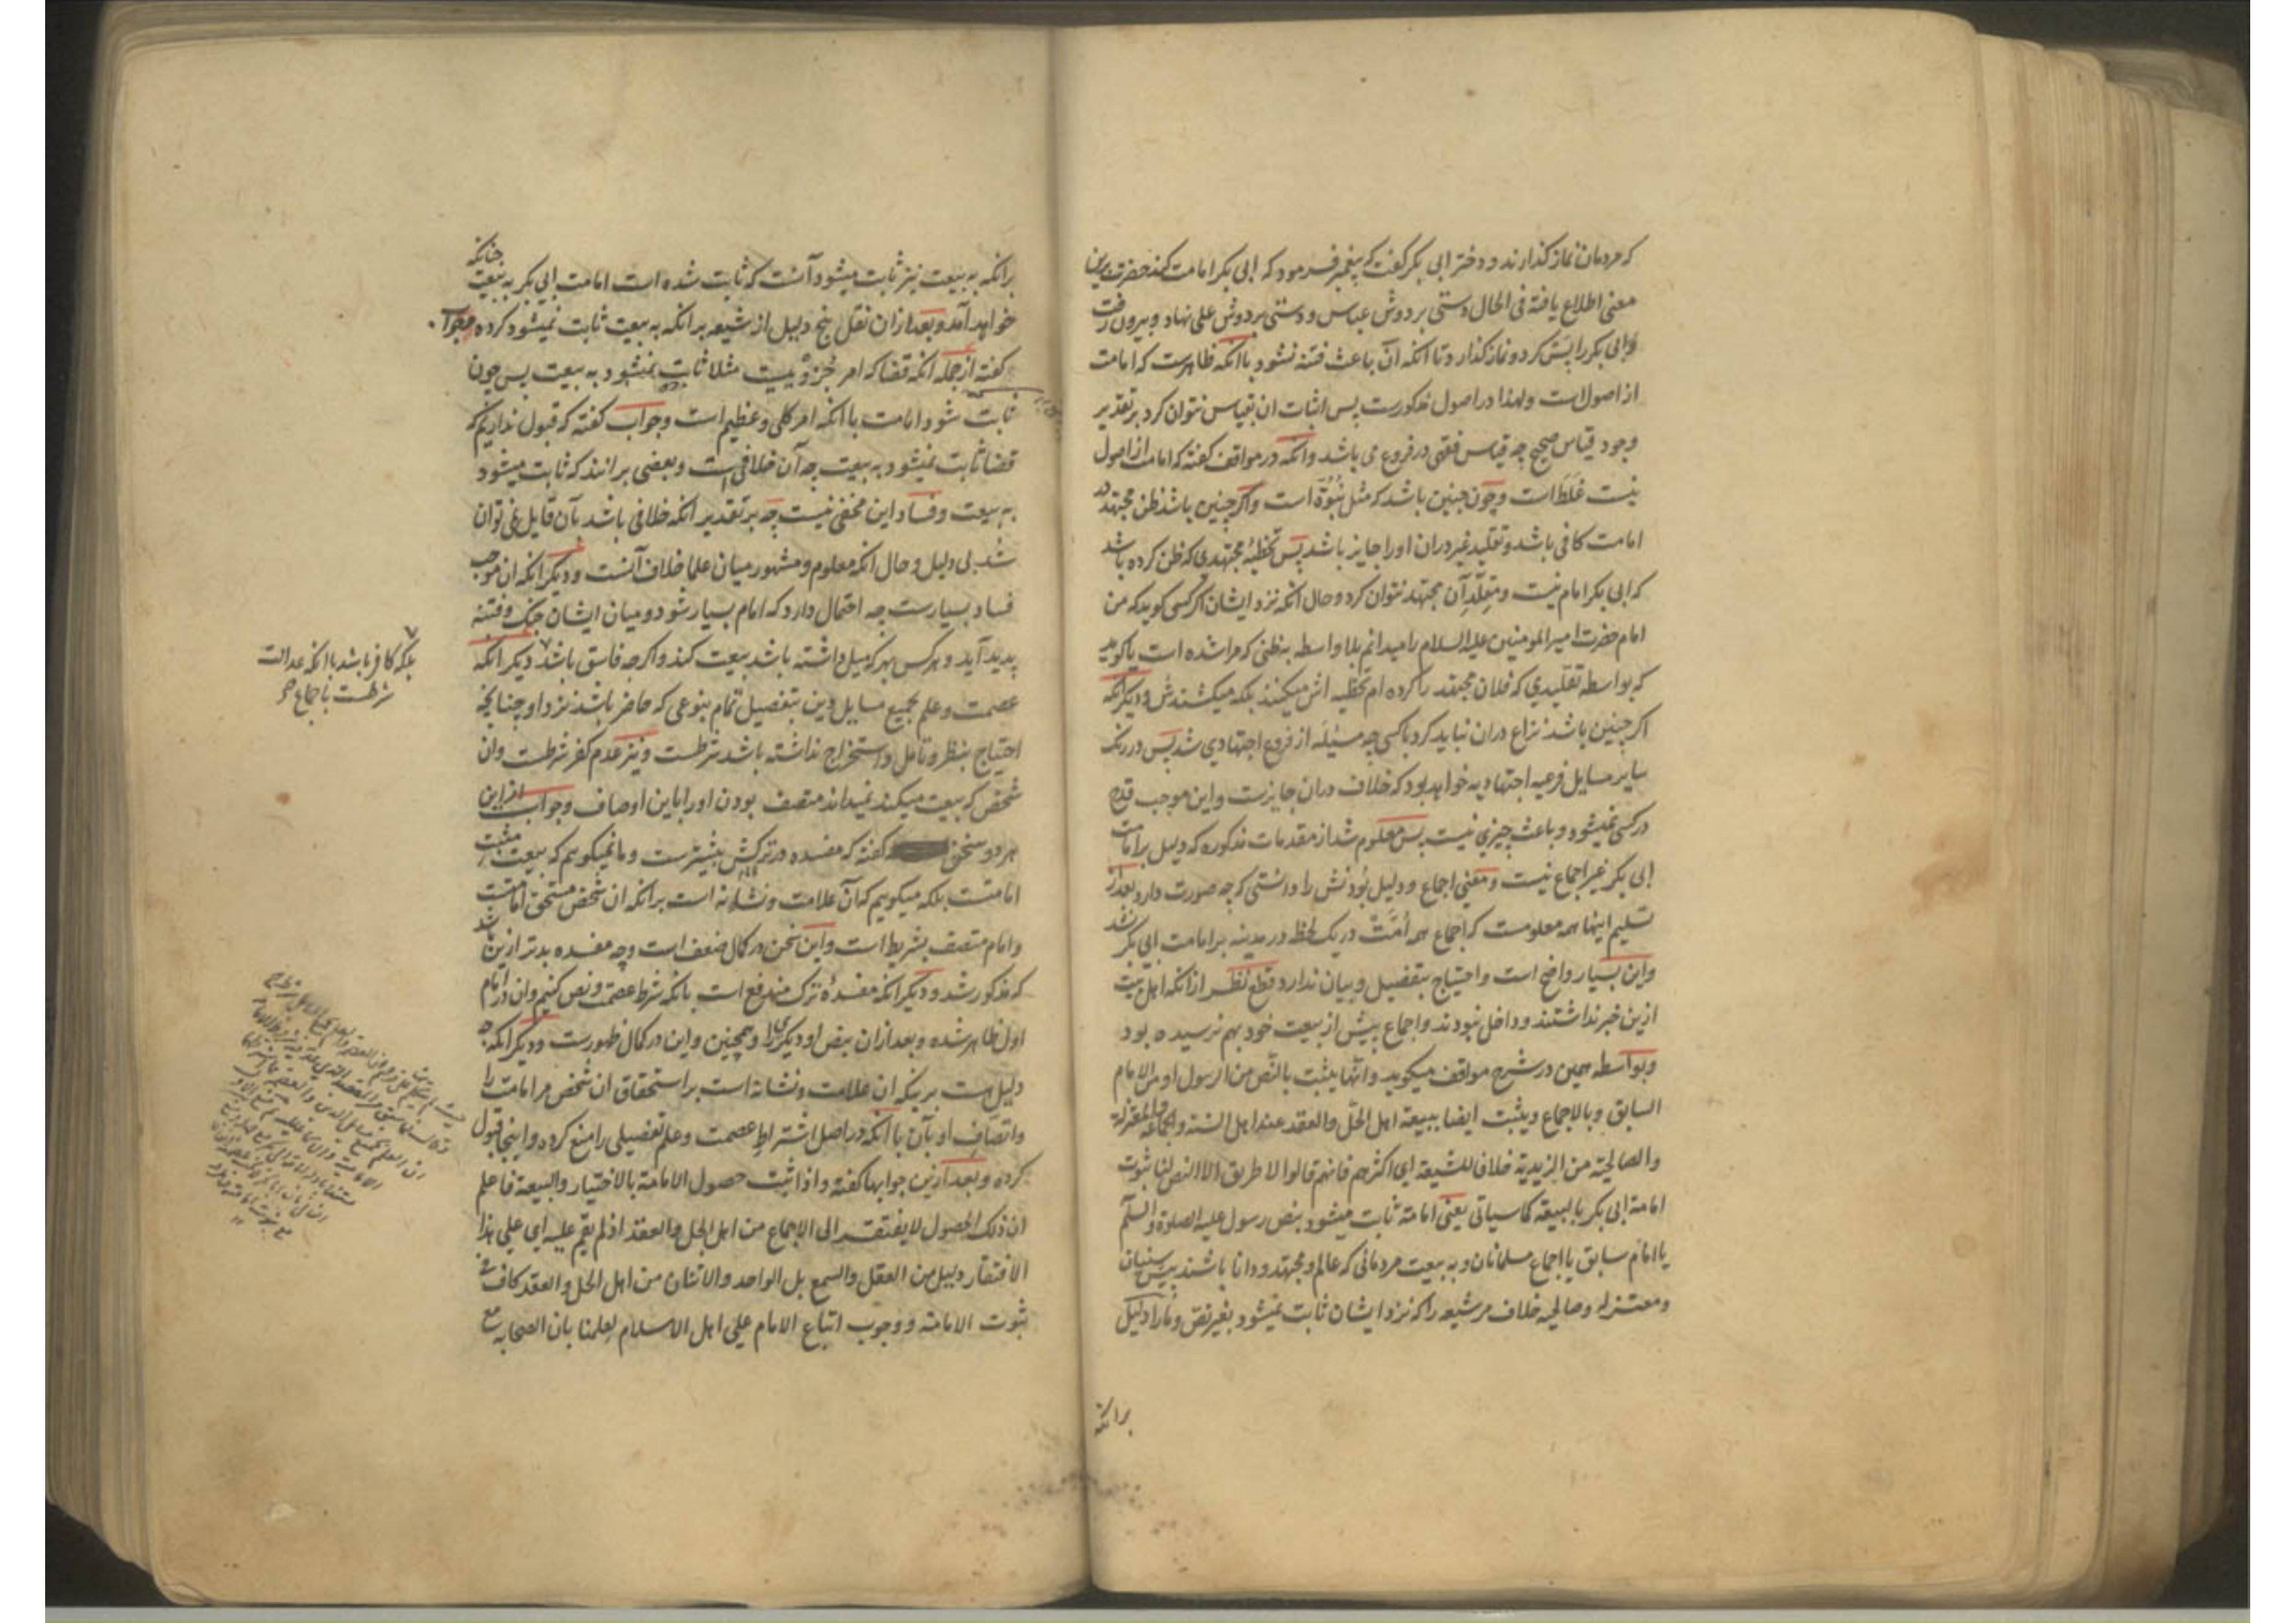 که مردمان نماز گذارند و دختر ابی بکر گفت که پیغمبر فرمود که ابی بکر امامت کند حضرت برین
معنی اطلاع یافته فی الحال دستی بر دوش عباس و دستی بر دوش علی نهاد و بیرون رفت
و ابی بکر را پس کرد و نماز گذارد تا آنکه آن باعث فتنه نشود با آنکه ظاهرست که امامت
از اصول است ولهذا در اصول مذکورست پس اثبات ان بقیاس نتوان کرد بر تقدیر
وجود قیاس صحیح چه قیاس فقهی در فروع می باشد وانکه در مواقف گفته که امامت از اصول
نیست غلط است و چون چنین باشد که مثل نبوة است واگر چنین باشد ظن مجتهد در
امامت کافی باشد و تقلید غیر دران او را جایز باشد پس تخطیه مجتهدی که ظن کرده باشد
که ابی بکر امام نیست و مقلد آن مجتهد نتوان کرد و حال آنکه نزد ایشان اگر کسی گوید که من
امام حضرت امیر المومنین علیه السلام را میدانم بلا واسطه بظنی که مرا شده است یا گوید
که بواسطه تقلیدی که فلان مجتهد را کرده ام تخطیه اش میکنند بلکه میکشندش و دیگر آنکه
اگر چنین باشد نزاع دران نباید کرد با کسی چه مسئله از فروع اجتهادی شد پس در رنک
سایر مسایل فرعیه اجتهادیه خواهد بود که خلاف دران جایزست و این موجب قدح
در کسی نمیشود و باعث چیزی نیست پس معلوم شد از مقدمات مذکوره که دلیل بر امامت
ابی بکر غیر اجماع نیست و معنی اجماع و دلیل بودنش را دانستی که چه صورت دارد بعد از
تسلیم اینها همه معلومست که اجماع همه امت در یک لحظه در مدینه بر امامت ابی بکر نشد
و این بسیار واضح است و احتیاج بتفصیل و بیان ندارد قطع نظر از آنکه اهل بیت
ازین خبر نداشتند و داخل نبودند و اجماع پیش از بیعت خود بهم نرسیده بود
و بواسطه همین در شرح مواقف میگوید وانها یثبت بالنص من الرسول او من الامام
السابق وبالاجماع ویثبت ایضا ببیعة اهل الحل والعقد عند اهل السنة والجماعة والمعتزلة
والصالحیة من الزیدیة خلافا للشیعة ای اکثرهم فانهم قالوا لا طریق الا النص لنا ثبوت
امامة ابی بکر بالبیعة کما سیاتی یعنی امامة ثابت میشود بنص رسول علیه الصلوة والسلم
یا امام سابق یا اجماع مسلمانان و به بیعت مردمانی که عالم و مجتهد و دانا باشند پیش سنیان
و معتزله و صالحیه خلاف مر شیعه را که نزد ایشان ثابت نمیشود بغیر نص و ما را دلیل
برانکه
برانکه به بیعت نیز ثابت میشود آنست که ثابت شده است امامت ابی بکر به بیعت چنانکه
خواهد آمد و بعد ازان نقل پنج دلیل از شیعه بر انکه به بیعت ثابت نمیشود کرده و جواب
گفته از جمله انکه قضا که امر جزویست مثلا ثابت نمیشود به بیعت پس چون
ثابت شود امامت با انکه امر کلی و عظیم است و جواب گفته که قبول نداریم که
قضا ثابت نمیشود به بیعت چه آن خلافی است و بعضی برانند که ثابت میشود
به بیعت و فساد این مخفی نیست چه بر تقدیر انکه خلافی باشد بآن قایل نمی توان
شد بی دلیل و حال انکه معلوم و مشهور میان علما خلاف آنست و دیگر انکه ان موجب
فساد بسیارست چه احتمال دارد که امام بسیار شود و میان ایشان جنک و فتنه
پدید آید و هر کس بهر که میل داشته باشد بیعت کند و اگر چه فاسق باشد دیگر انکه
عصمت و علم بجمیع مسایل دین بتفصیل تمام بنوعی که حاضر باشد نزد او چنانچه
احتیاج بنظر و تامل و استخراج نداشته باشد شرطست و نیز عدم کفر شرطست وان
شخص که بیعت میکند نمیداند متصف بودن او را باین اوصاف و جواب از این
هر دو سخن گفته که مفسده در ترکش بیشترست و ما نمیگوییم که بیعت مثبت
امامتست بلکه میگوییم که آن علامت و نشانه است بر انکه ان شخص مستحق امامتست
و امام متصف بشریط است و این سخن در کمال ضعف است و چه مفسده بدتر ازین باشد
که مذکور شد و دیگر انکه مفسده ترک مندفع است بانکه شرط عصمت و نص کنیم وان در امام
اول ظاهر شده و بعد ازان بنص او دیگری را و همچنین و این در کمال ظهورست و دیگر انکه چه
دلیل هست برینکه ان علامت و نشانه است بر استحقاق ان شخص مر امامت را
و اتصاف او بآن با انکه در اصل اشتراط عصمت و علم تفصیلی را منع کرده و اینجا قبول
کرده و بعد ازین جوابها گفته و اذا ثبت حصول الامامة بالاختیار والبیعة فاعلم
ان ذلک الحصول لا یفتقر الی الاجماع من اهل الحل والعقد اذ لم یقم علیه ای علی هذا
الافتقار دلیل من العقل والسمع بل الواحد والاثنان من اهل الحل والعقد کاف فی
ثبوت الامامة ووجوب اتباع الامام علی اهل الاسلام لعلمنا بان الصحابه مع
بلکه کافر باشد با انکه عدالت
شرطست باجماع